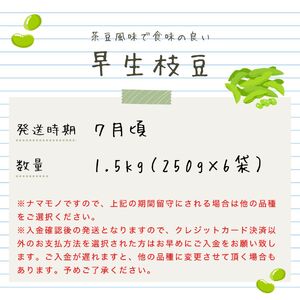 茶豆風味で食味の良い
早生枝豆
発送時期 7月頃
数量 1.5kg(250g×6袋)
※ナマモノですので、上記の期間留守にされる場合は他の品種
をご選択ください。
※入金確認後の発送となりますので、クレジットカード決済以
外のお支払方法を選択された方はお早めにご入金をお願い致し
ます。ご入金が遅れますと、他の品種に変更させて頂く場合も
あります。予めご了承ください。